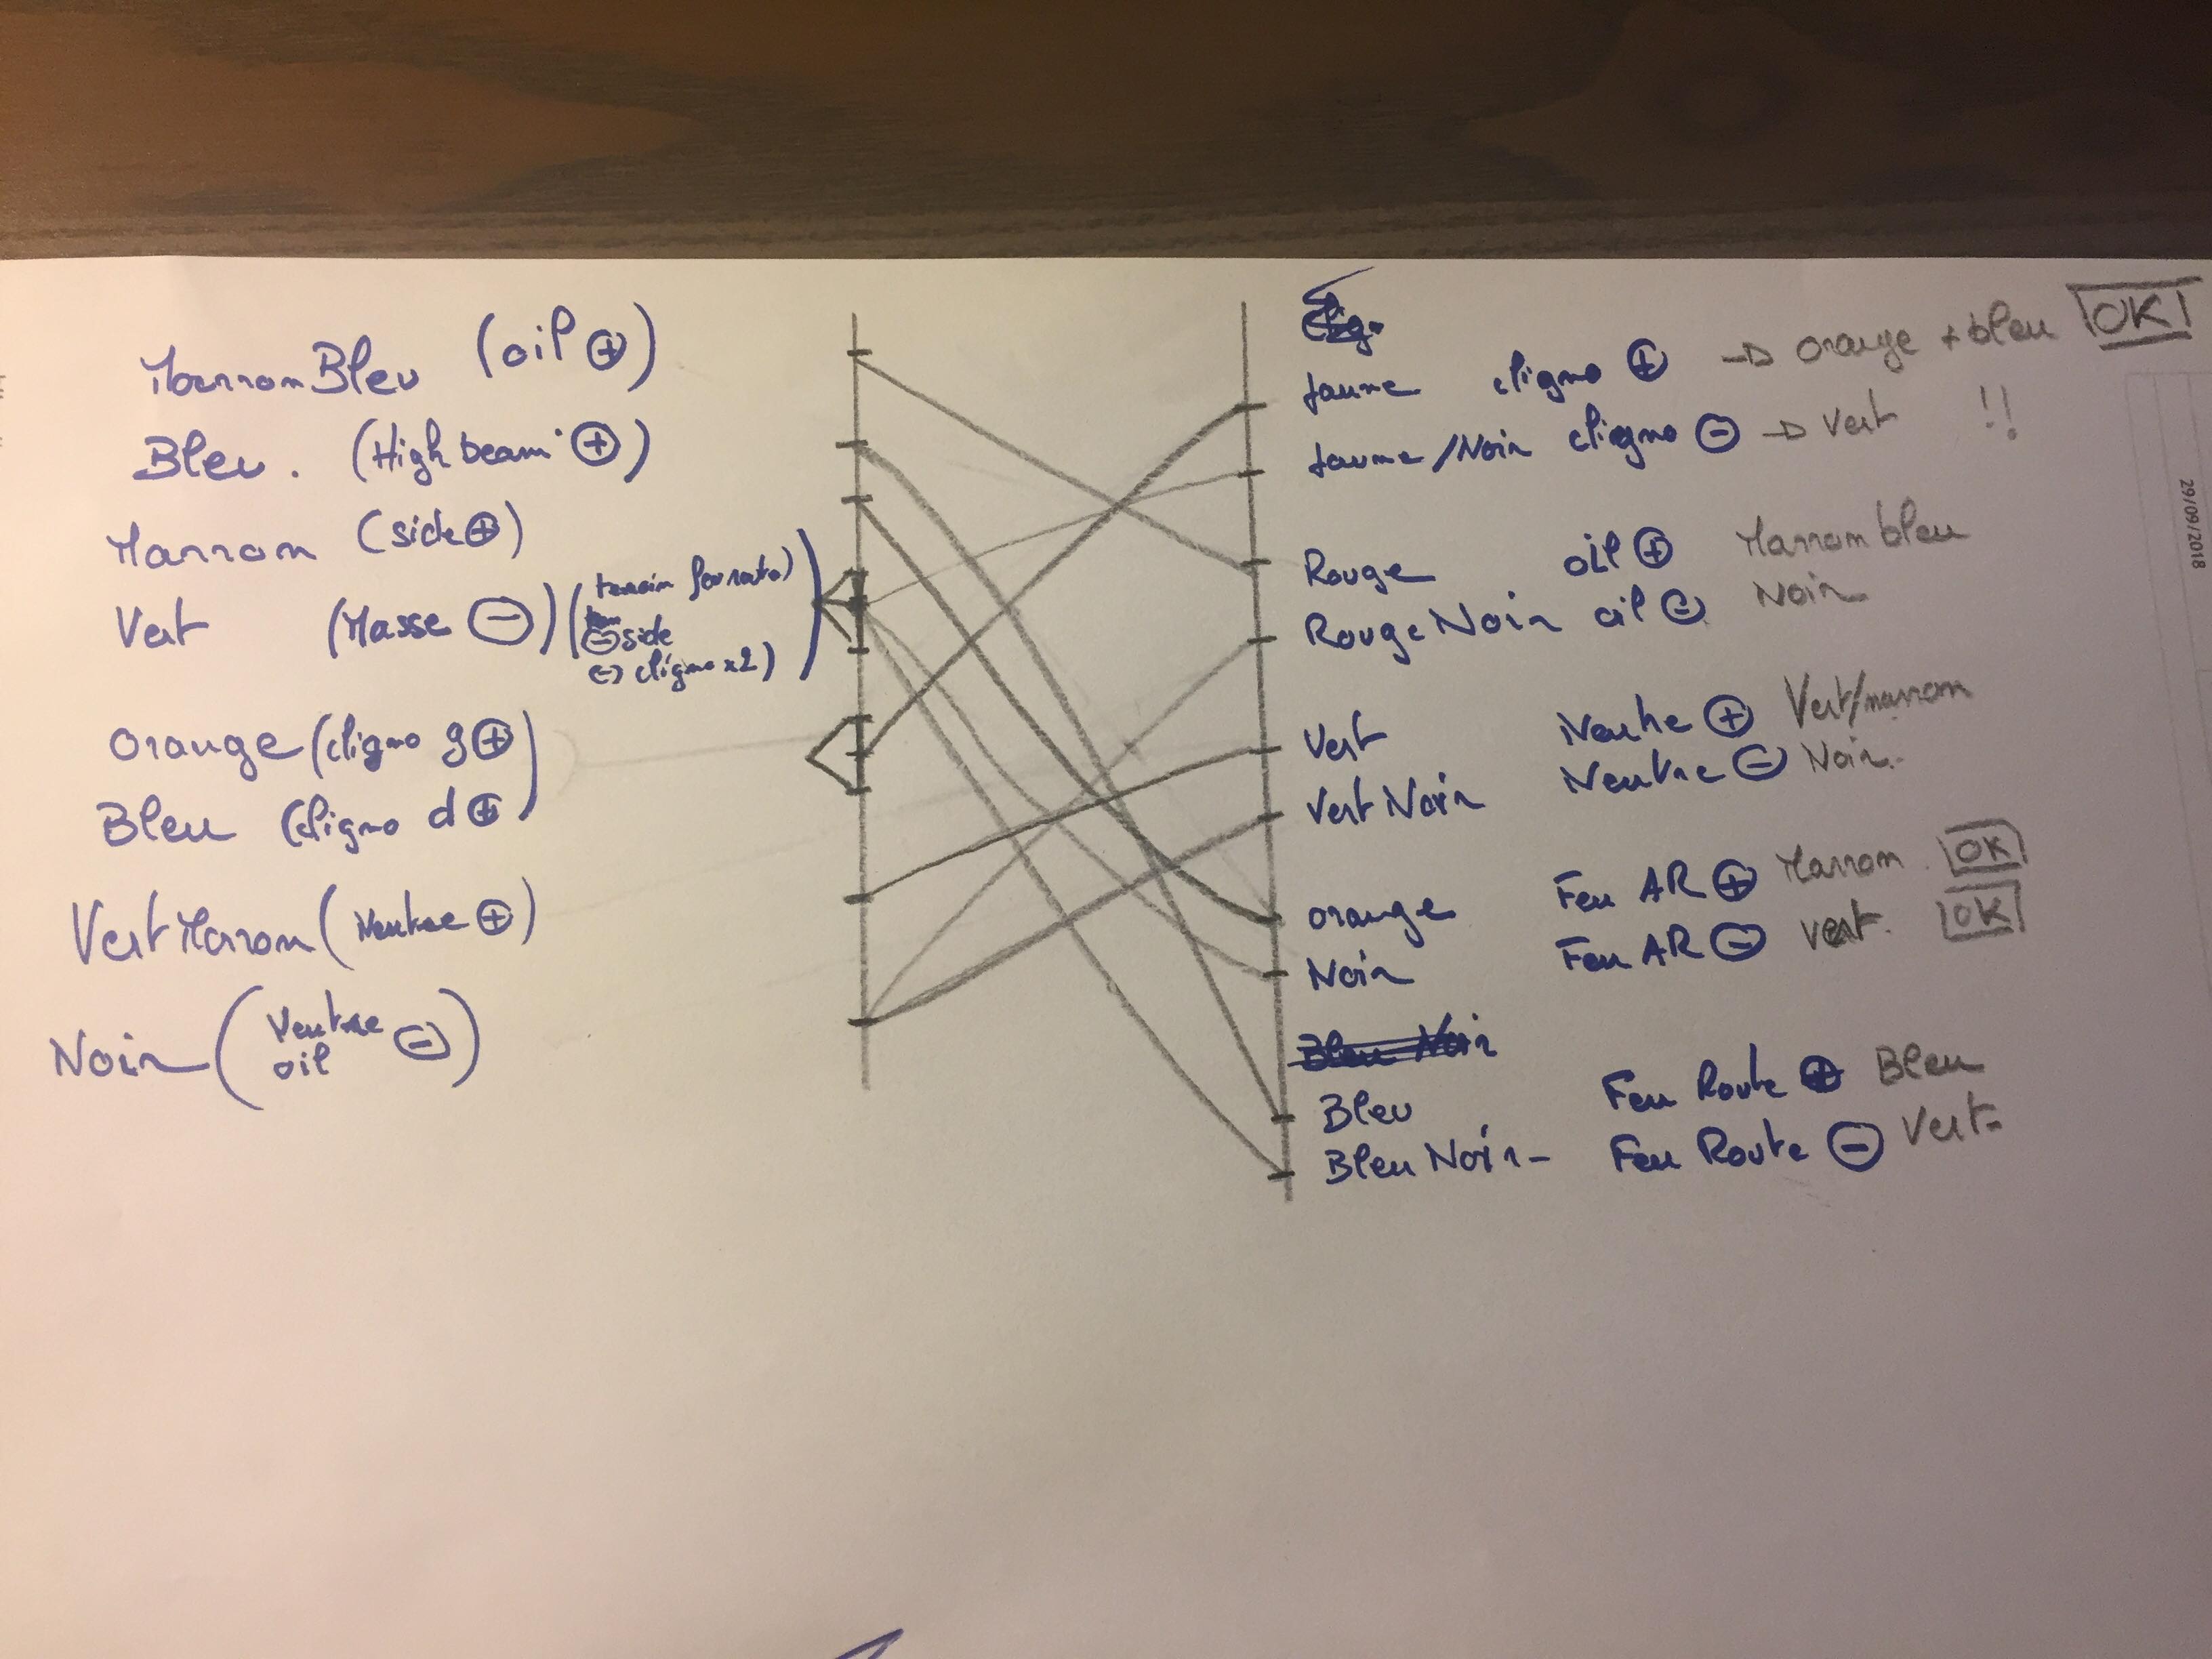 Marron Bleu (oil ⊕)
Bleu. (High beam ⊕)
Marron (side ⊕)
Vert (Masse ⊖) (
⊖ side
⊖ cligno x2)
Orange (cligno g ⊕)
Bleu (cligno d ⊕)
Vert Marron (Neutre ⊕)
Noir (Neutre
oil ⊖)
Jaune cligno ⊕ → orange + bleu OK!
Jaune/Noir cligno ⊖ → Vert !!
Rouge oil ⊕ Marron bleu
Rouge Noir oil ⊖ Noir
Vert Neutre ⊕ Vert/marron
Vert Noir Neutre ⊖ Noir.
Orange Feu AR ⊕ Marron. OK
Noir Feu AR ⊖ Vert. OK
Bleu Noir
Bleu Feu Route ⊕ Bleu
Bleu Noir - Feu Route ⊖ Vert-
29/09/2018